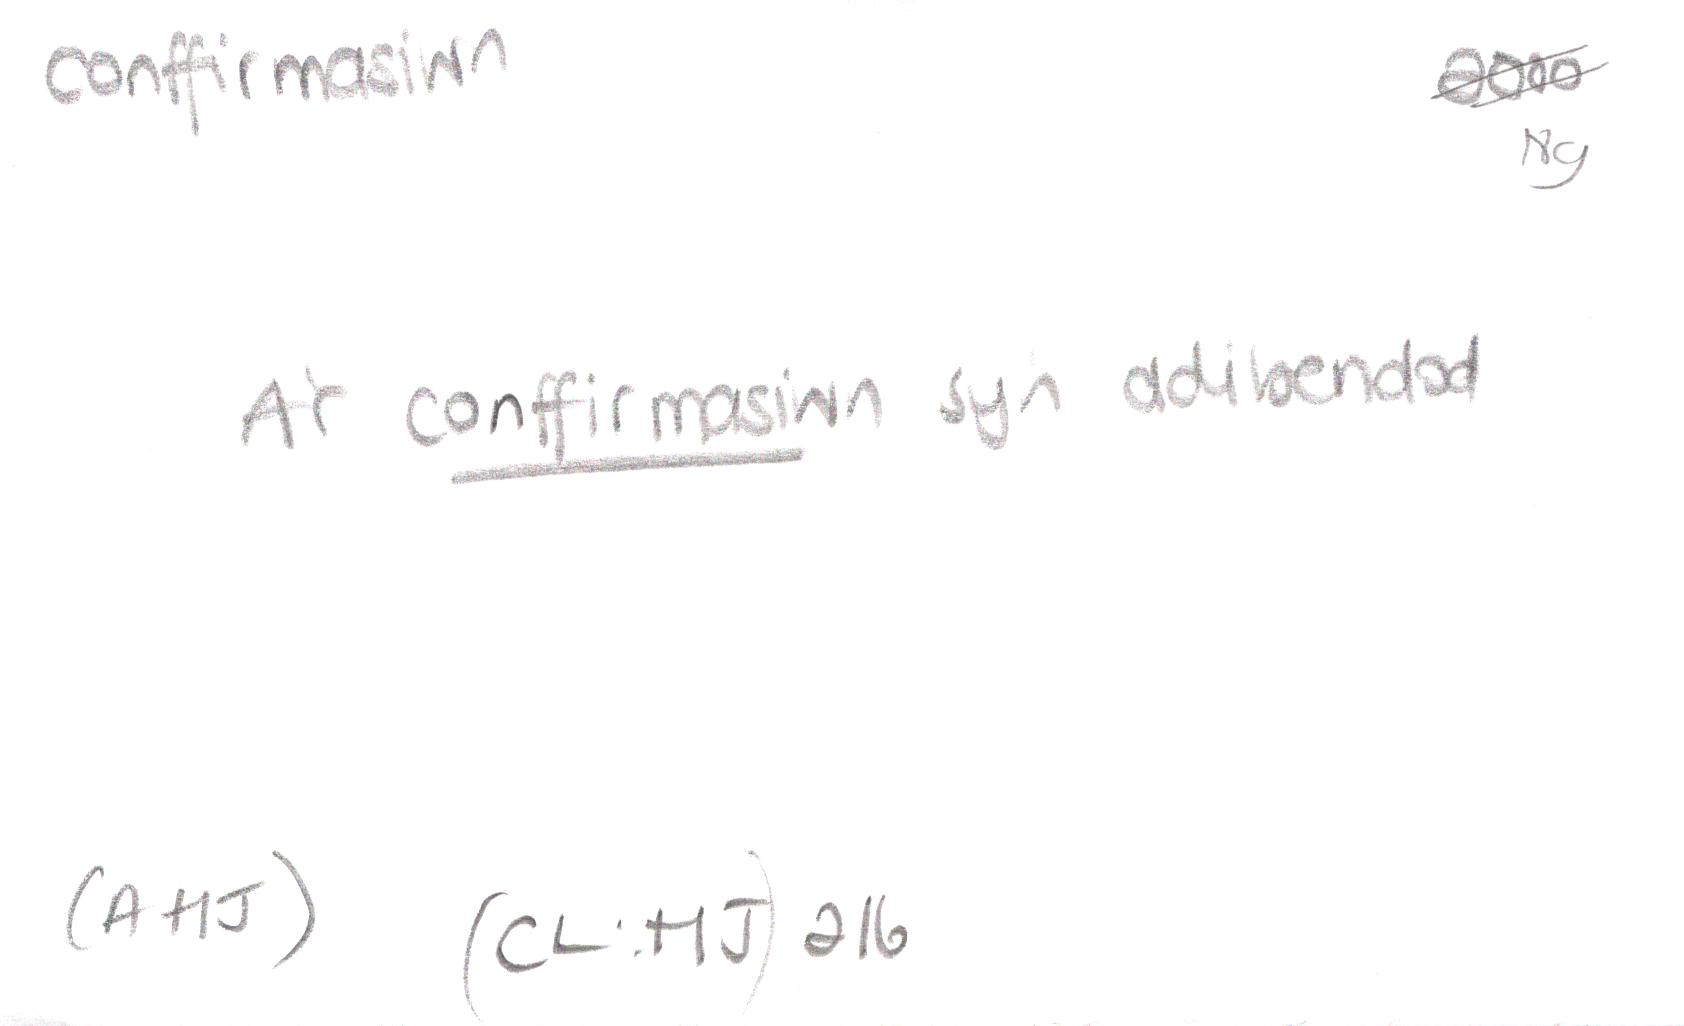 conffirmasiwn
Ng
A'r conffirmasiwn sy'n ddibendod
(AHJ) (CL:HJ) 216